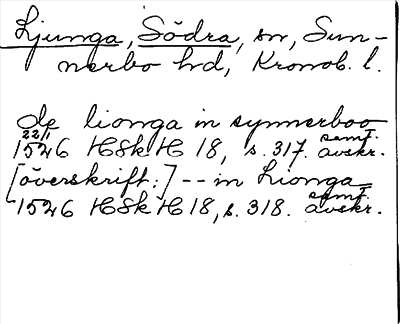 Ljunga, Södra, sn, Sun-
nerbo hd, Kronob. l.
de lionga in synnerboo
22/1
1526 HSkH 18, s. 317. samt. avskr.
[överskrift:] -- in Lionga
1526 HSkH 18, s. 318. samt. avskr.